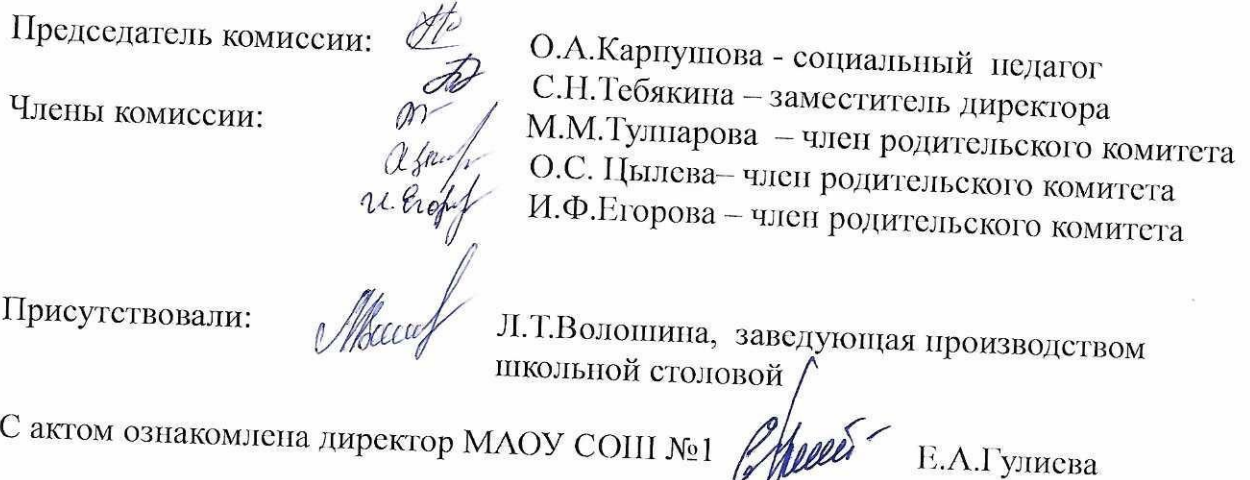 Председатель комиссии: О.А.Карпушова - социальный педагог
С.Н.Тебякина – заместитель директора
Члены комиссии: М.М.Тулпарова – член родительского комитета
О.С. Цылева– член родительского комитета
И.Ф.Егорова – член родительского комитета
Присутствовали: Л.Т.Волошина, заведующая производством
школьной столовой
С актом ознакомлена директор МАОУ СОШ №1 Е.А.Гулиева